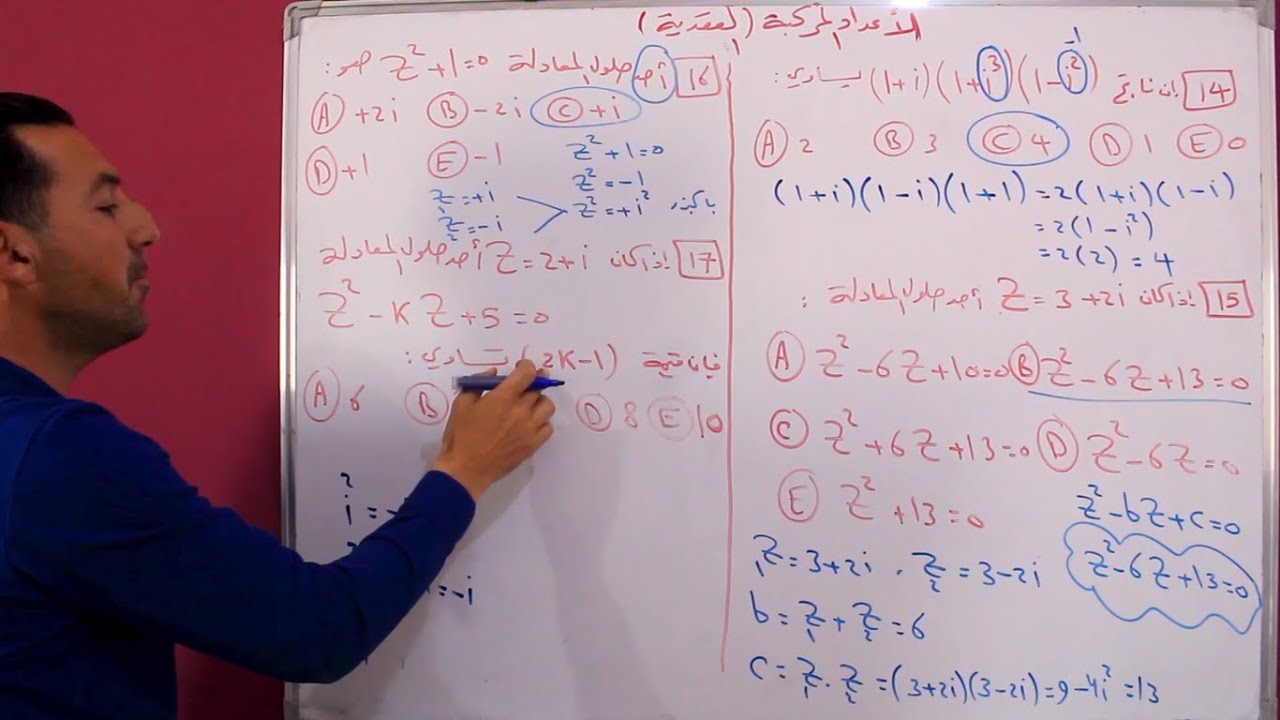 الأعداد المركبة (العقدية)
14 إن ناتج (1+i)(1+i³)(1-i²) يساوي:
-1
A 2 B 3 C 4 D 1 E 0
(1+i)(1-i)(1+1) = 2(1+i)(1-i)
= 2(1-i²)
= 2(2) = 4
15 إذا كان Z = 3+2i أحد حلول المعادلة :
A Z² - 6Z + 10 = 0 B Z² - 6Z + 13 = 0
C Z² + 6Z + 13 = 0 D Z² - 6Z = 0
E Z² + 13 = 0
Z² - bZ + C = 0
Z² - 6Z + 13 = 0
Z₁ = 3+2i . Z₂ = 3-2i
b = Z₁ + Z₂ = 6
C = Z₁ . Z₂ = (3+2i)(3-2i) = 9 - 4i² = 13
16 أحد حلول المعادلة Z² + 1 = 0 هو:
A +2i B -2i C +i
D +1 E -1
Z² + 1 = 0
Z² = -1
Z² = +i² بالجذر
Z₁ = +i
Z₂ = -i
17 إذا كان Z = 2+i أحد حلول المعادلة
Z² - KZ + 5 = 0
فإن قيمة (2K-1) تساوي:
A 6 B D 8 E 10
i² = -
= -i